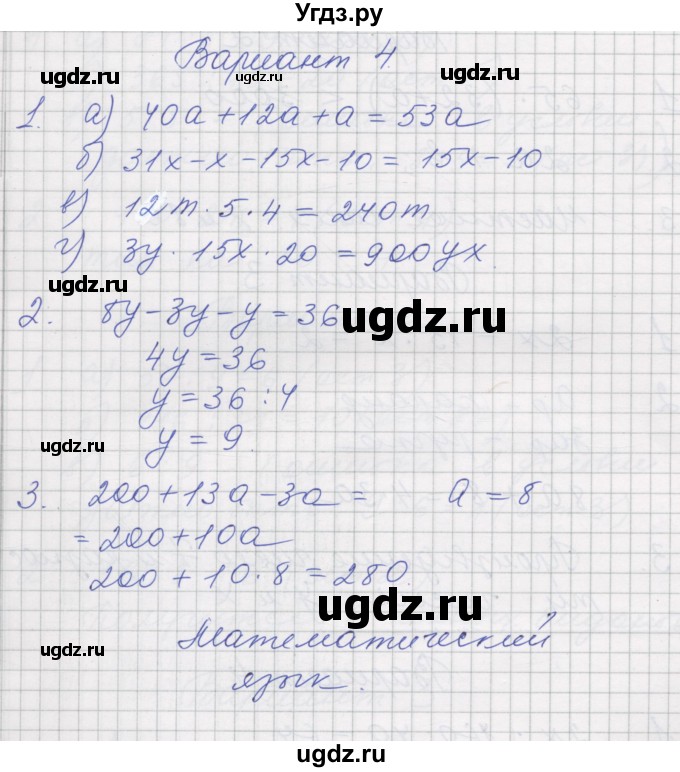 Угдз.ру
Вариант 4
ugdz.ru ugdz.ru ugdz.ru
1. а) 40а + 12а + а = 53а
б) 31х - х - 15х - 10 = 15х - 10
в) 12m · 5 · 4 = 240m
г) 3у · 15х · 20 = 900ух.
ugdz.ru
2. 8у - 3у - у = 36
ugdz.ru
4у = 36
у = 36 : 4
ugdz.ru
у = 9.
3. 200 + 13а - 3а = а = 8
= 200 + 10а
200 + 10 · 8 = 280.
ugdz.ru
ugdz.ru
Математический
язык.
ugdz.ru